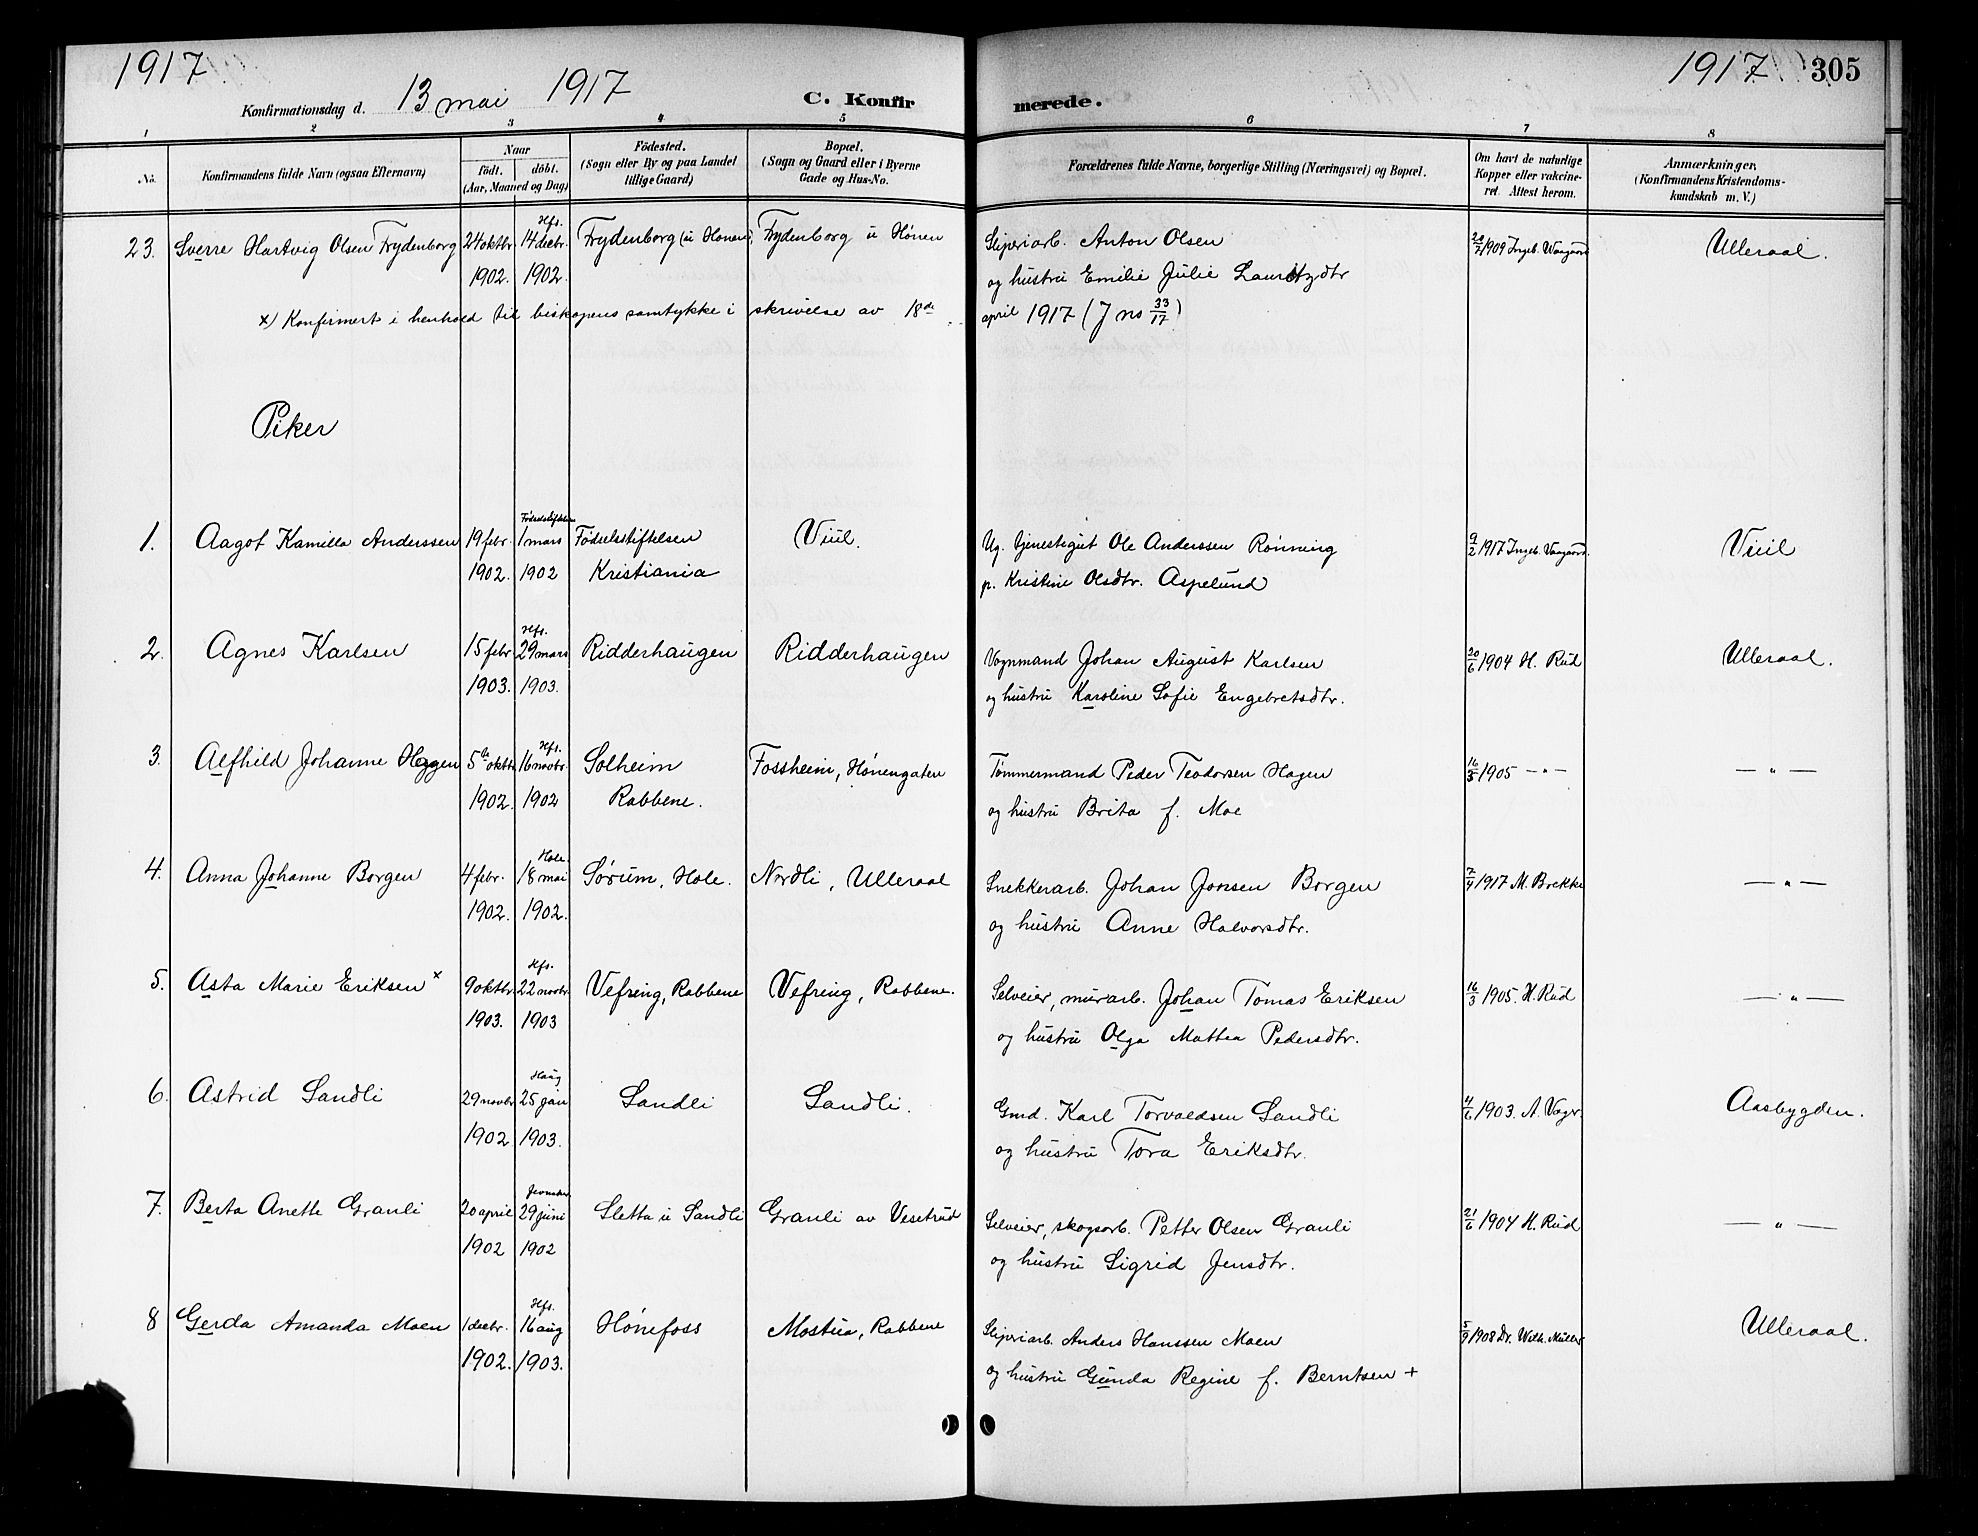 1917 1917 305
Konfirmationsdag d. 13 mai 1917 C. Konfirmerede.
1 2 3 4 5 6 7 8
No. Konfirmandens fulde Navn (ogsaa Efternavn) Naar født. døbt. (Aar, Maaned og Dag) Fødested. (Sogn eller By og paa Landet tillige Gaard) Bopæl. (Sogn og Gaard eller i Byerne Gade og Hus-No. Forældrenes fulde Navne, borgerlige Stilling (Næringsvei) og Bopæl. Om havt de naturlige Kopper eller vakcineret. Attest herom. Anmærkninger. (Konfirmandens Kristendomskundskab m. V.)
Hfs.
23. Sverre Hartvig Olsen Frydenborg 24 oktbr. 14 decbr. Frydenborg (u Hønen) Frydenborg u Hønen Sliperiarb. Anton Olsen 1909 Ingeb. Ulleraal.
1902. 1902. og hustru Emilie Julie Lauritzdtr
x) Konfirmert i henhold til biskopens samtykke i skrivelse av 18de april 1917 (J no 33/17)
Piker
Fødselsstiftelsen
1. Aagot Kamilla Anderssen 19 febr. 1 mars Fødselsstiftelsen Viul. Ug. tjenestegut Ole Anderssen Rønning 9/2 1917 Ingeb. Viul
1902. 1902 Kristiania p. Kristine Olsdtr. Aspelund
Hfs.
2. Agnes Karlsen 15 febr 29 mars Ridderhaugen Ridderhaugen Vognmand Johan August Karlsen 20/6 1904 H. Rud Ulleraal.
1903. 1903. og hustru Karoline Sofie Engebretsdtr.
Hfs.
3. Alfhild Johanne Haggen 5te oktbr 16 novbr. Solheim Fossheim, Hønengaten Tømmermand Peder Teodorsen Hagen 16/3 1905 —"— —"—
1902. 1902 Rabbene. og hustru Brita f. Moe
Hole.
4. Anna Johanne Borgen 4 febr. 18 mai Sørum, Hole. Nordli, Ulleraal Snekkerarb. Johan Jonsen Borgen 1917 M. Brekke —"—
1902. 1902. og hustru Anne Halvorsdtr.
Hfs.
5. Asta Marie Eriksen x 9 oktbr. 22 novbr. Vefring, Rabbene Vefring, Rabbene. Selveier, murarb. Johan Tomas Eriksen 16/3 1905. H. Rud —"—
1903. 1903 og hustru Olga Mattea Pedersdtr.
Haug
6. Astrid Sandli 29 novbr 25 jan Sandli Sandli. Gmd. Karl Torvaldsen Sandli 4/6 1903. A. Aasbygden.
1902 1903. og hustru Tora Eriksdtr.
Jevnaker
7. Berta Anette Granli 20 april 29 juni Sletta u Sandli Granli av Vesetrud Selveier, skogsarb. Petter Olsen Granli 21/6 1904 H. Rud —"—
1902 1902 og hustru Sigrid Jensdtr.
Hfs.
8 Gerda Amanda Moen 1 decbr. 16 aug Hønefoss Mostua, Rabbene Sliperiarb. Anders Hanssen Moen 5/9 1908 Dr. Wilh. Müller Ulleraal.
1902. 1903. og hustru Gunda Regine f. Berntsen +